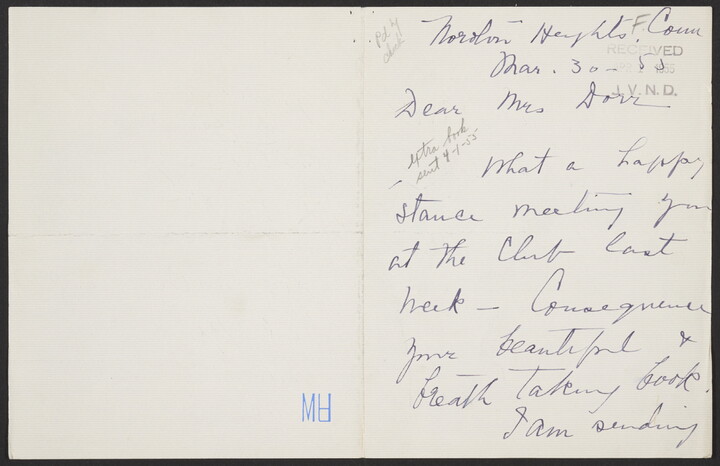 Noroton Heights, Conn
F.
RECEIVED
1955
J.V.N.D.
Mar. 30 - 55
Pd by
check
Dear Mrs Dorr
extra book
sent 4-1-55
What a happy
stance meeting you
at the Club last
week - Consequence
your beautiful &
breath taking book.
I am sending
MH